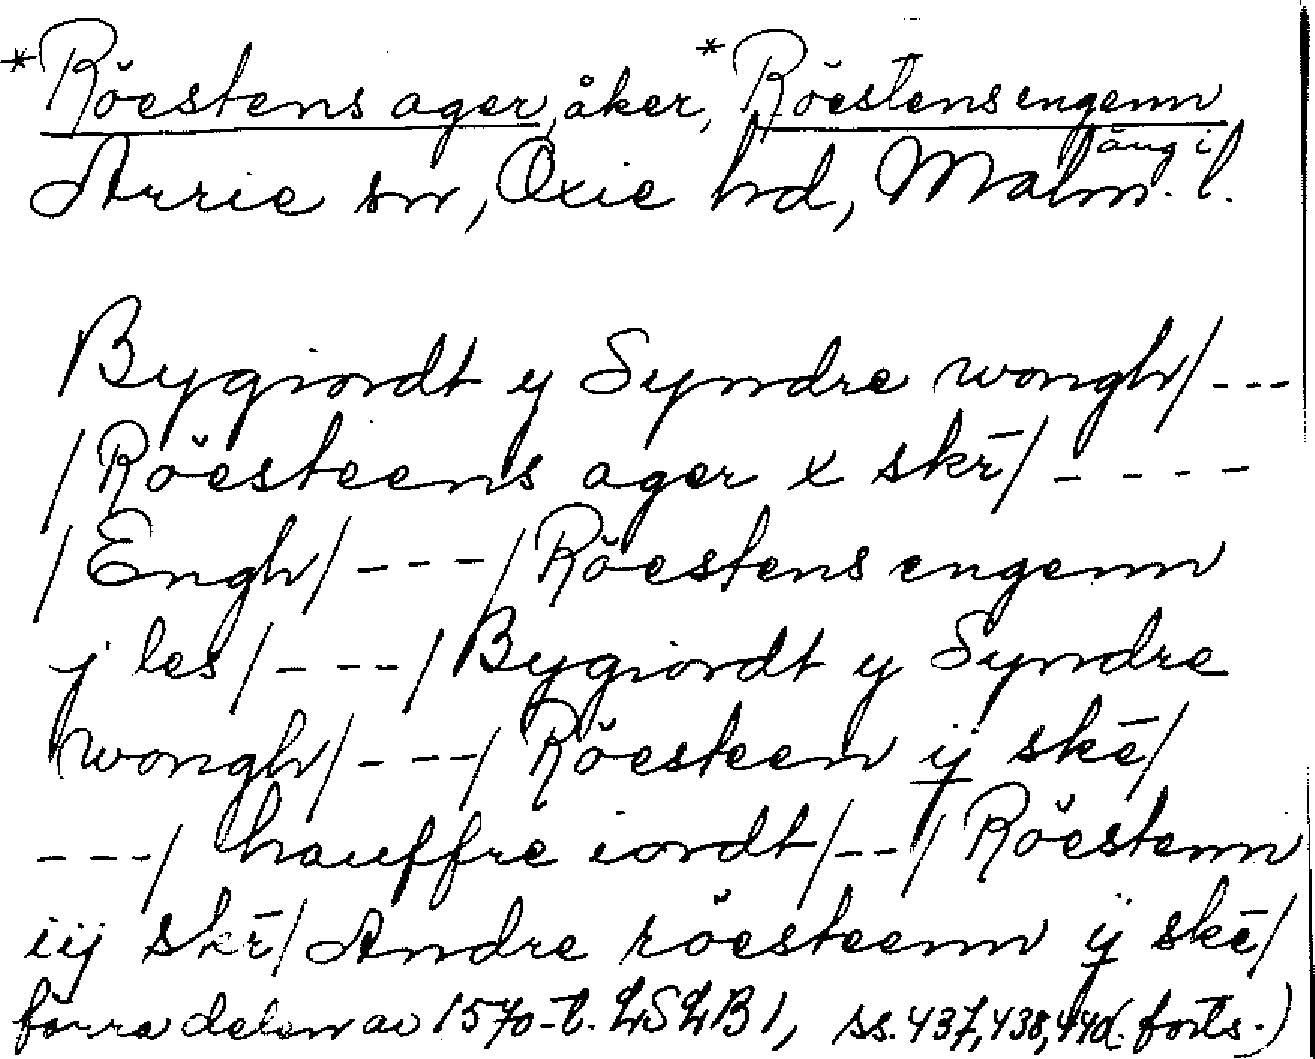 *Röestens ager, åker, *Röestensengenn
äng i
Arrie sn, Oxie hd, Malm. l.
Bygiordt y Syndre wongh/---
/Röesteens ager x skr̄/----
/Engh/---/Röestens engenn
j les/---/Bygiordt y Syndre
wongh/---/Röesteen ij skē/
---/hauffre iordt/--/Röestenn
iij skr̄/Andre röesteenn ij skē/
förra delen av 1570-t. LSLB1, ss. 437, 438, 440 (forts.)